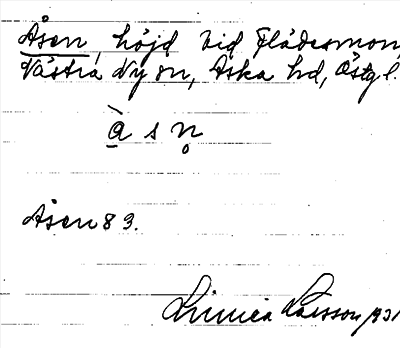 Åsen, höjd vid Flädermon,
Västra Ny sn, Aska hd, Östgl.
à̱ s n̥
Åsen 83.
Linnea Larsson 1931